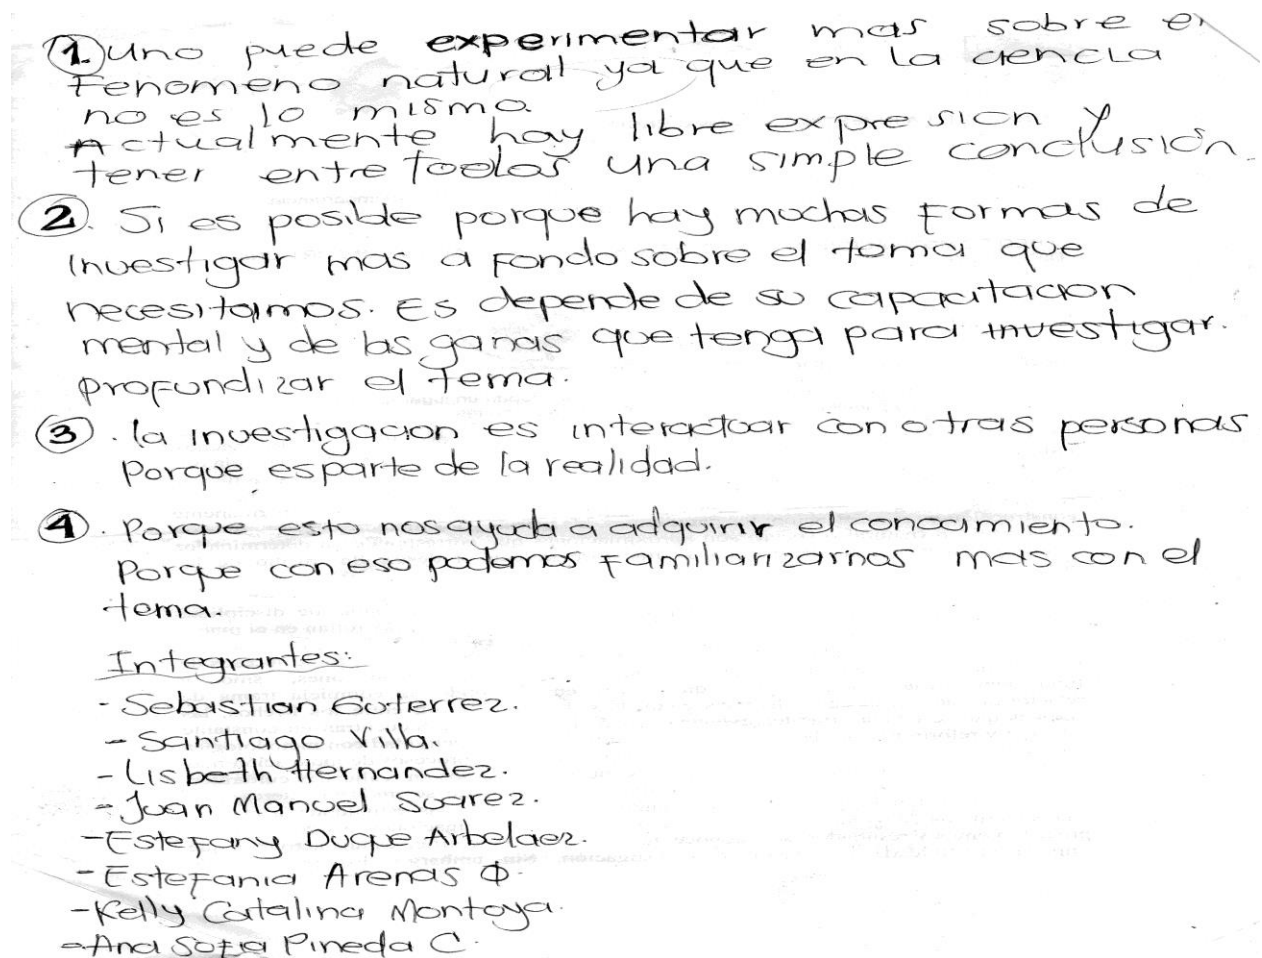 1. Uno puede experimentar mas sobre el
Fenomeno natural ya que en la ciencia
no es lo mismo.
Actualmente hay libre expresion y
tener entre todas una simple conclusión.
2. Si es posible porque hay muchas Formas de
investigar mas a Fondo sobre el tema que
necesitamos. Es depende de su capacitacion
mental y de las ganas que tenga para investigar.
profundizar el tema.
3. la investigacion es interactuar con otras personas
Porque es parte de la realidad.
4. Porque esto nos ayuda a adquirir el conocimiento.
Porque con eso podemos Familiarizarnos mas con el
tema.
Integrantes:
- Sebastian Guterrez.
- Santiago Villa.
- Lisbeth Hernandez.
- Juan Manuel Suarez.
- Estefany Duque Arbelaez.
- Estefania Arenas O.
- Kelly Catalina Montoya.
- Ana Sofia Pineda C.